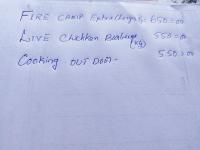 FIRE CAMP Extra charge Rs 650=00
LIVE Chickken (KG) 550=00
Cooking OUT DOOR - 550=00